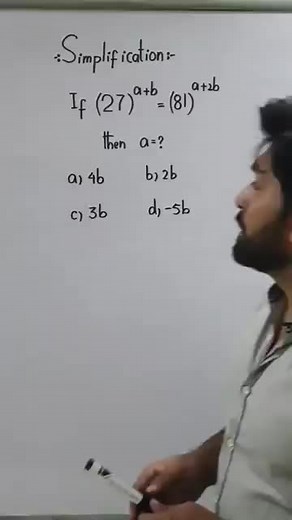 :Simplification:-
If (27)^a+b = (81)^a+2b
then a=?
a) 4b b) 2b
c) 3b d) -5b